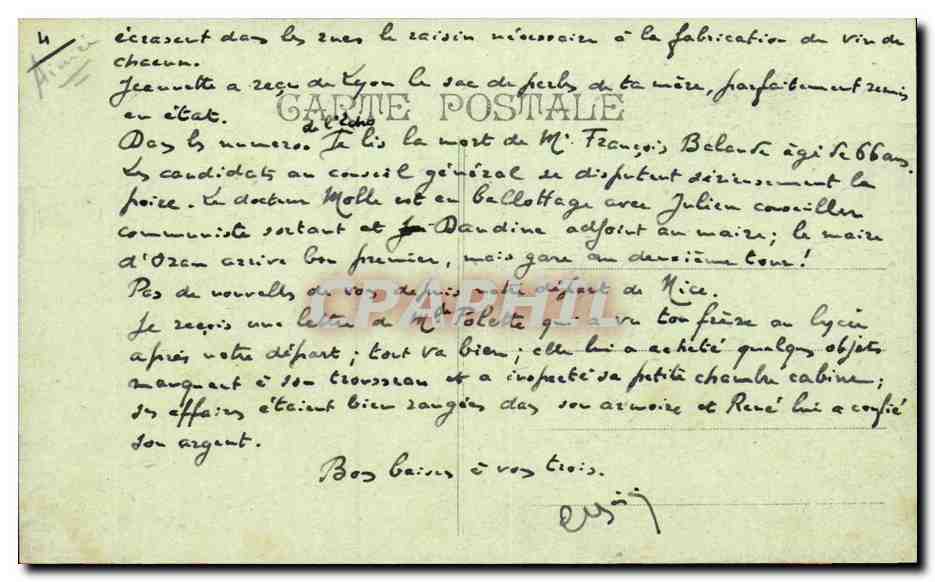 4
écrasent dans les rues le raisin nécessaire à la fabrication du vin de
chacun.
Jeannette a reçu de Lyon le sac de perles de ta mère, parfaitement remis
CARTE POSTALE
en état.
de l'Echo
Dans les numeros. Je lis la mort de Mr François Balande âgé de 66 ans.
Les candidats au conseil général se disputent sérieusement la
poire. Le docteur Molle est en ballottage avec Julien conseiller
communiste sortant et Dandine adjoint au maire; le maire
d'Oran arrive bon premier, mais gare au deuxième tour!
Pas de nouvelles de vous depuis notre départ de Nice.
CPAPHIL
Je reçois une lettre de Mlle Polette qui a vu ton frère au lycée
après notre départ; tout va bien; elle lui a acheté quelques objets
manquant à son trousseau et a inspecté sa petite chambre cabine;
ses affaires étaient bien rangées dans son armoire et René lui a confié
son argent.
Bons baisers à vous trois.